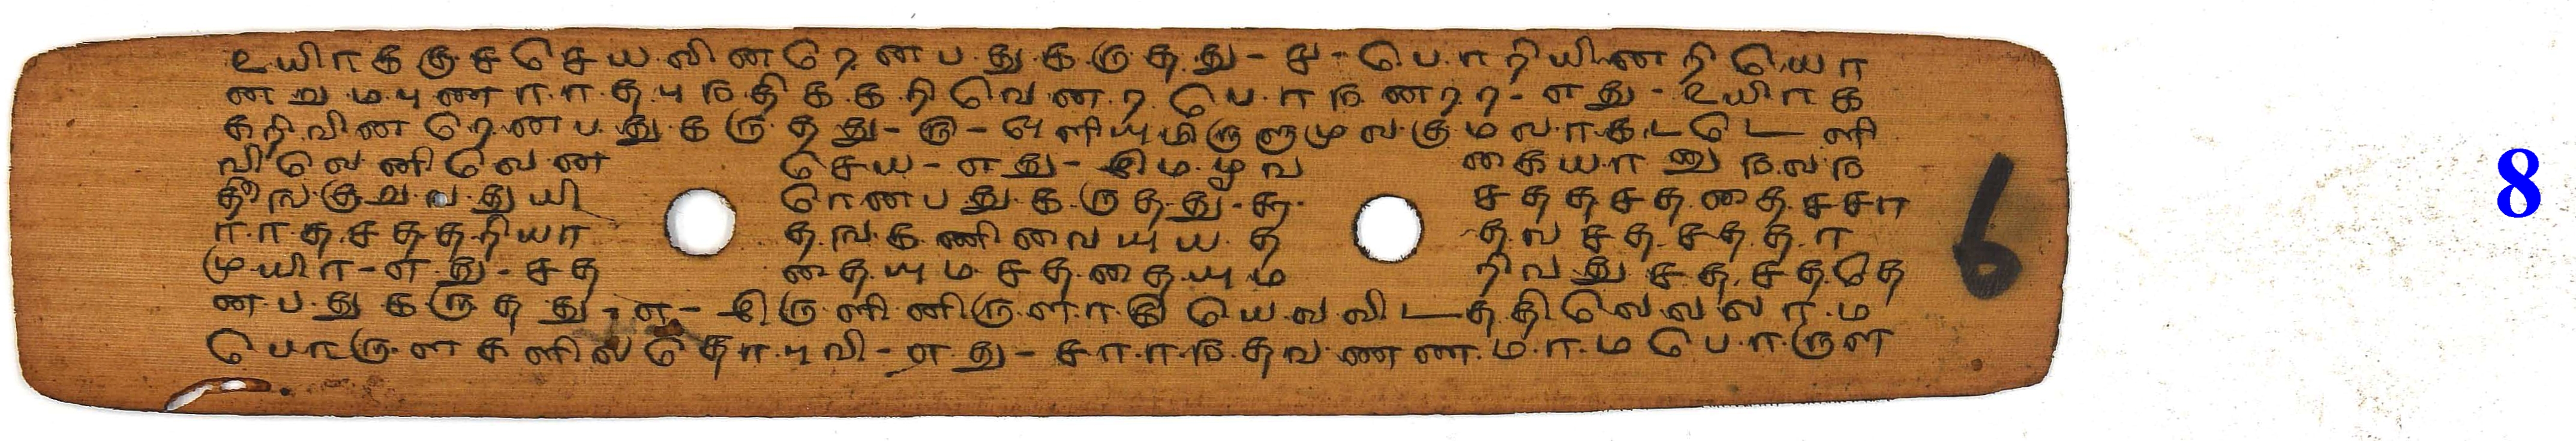 உயிாககுசசெயலினறெனபதுகருதது - சு - பொறியினறியொ
னறுமபுணராதபுநதிககறிவெனறபொநணரர - எது - உயிாக
கறிவினறெனபதுகருதது - ரு - ஒளியுமிருளுமுலகுமலாகடடெளி
விலெனிலென செய - எது - இமமுவ கையானுநலந
தீஙகுறுவதுயி ரெனபதுகருதது - சு சதசததைசசா
ராதசததறியா தஙகணிவையுயத தவசதசததா
முயிா - எது - சத தையுமசததையும றிவதுசதசதே
னபதுகருதது - எ - இருளினிருளாகியெவவிடததிலெவவாம
பொருளகளிலதொபுவி - எது - சாாநதவணணமாமபொருள
6
8